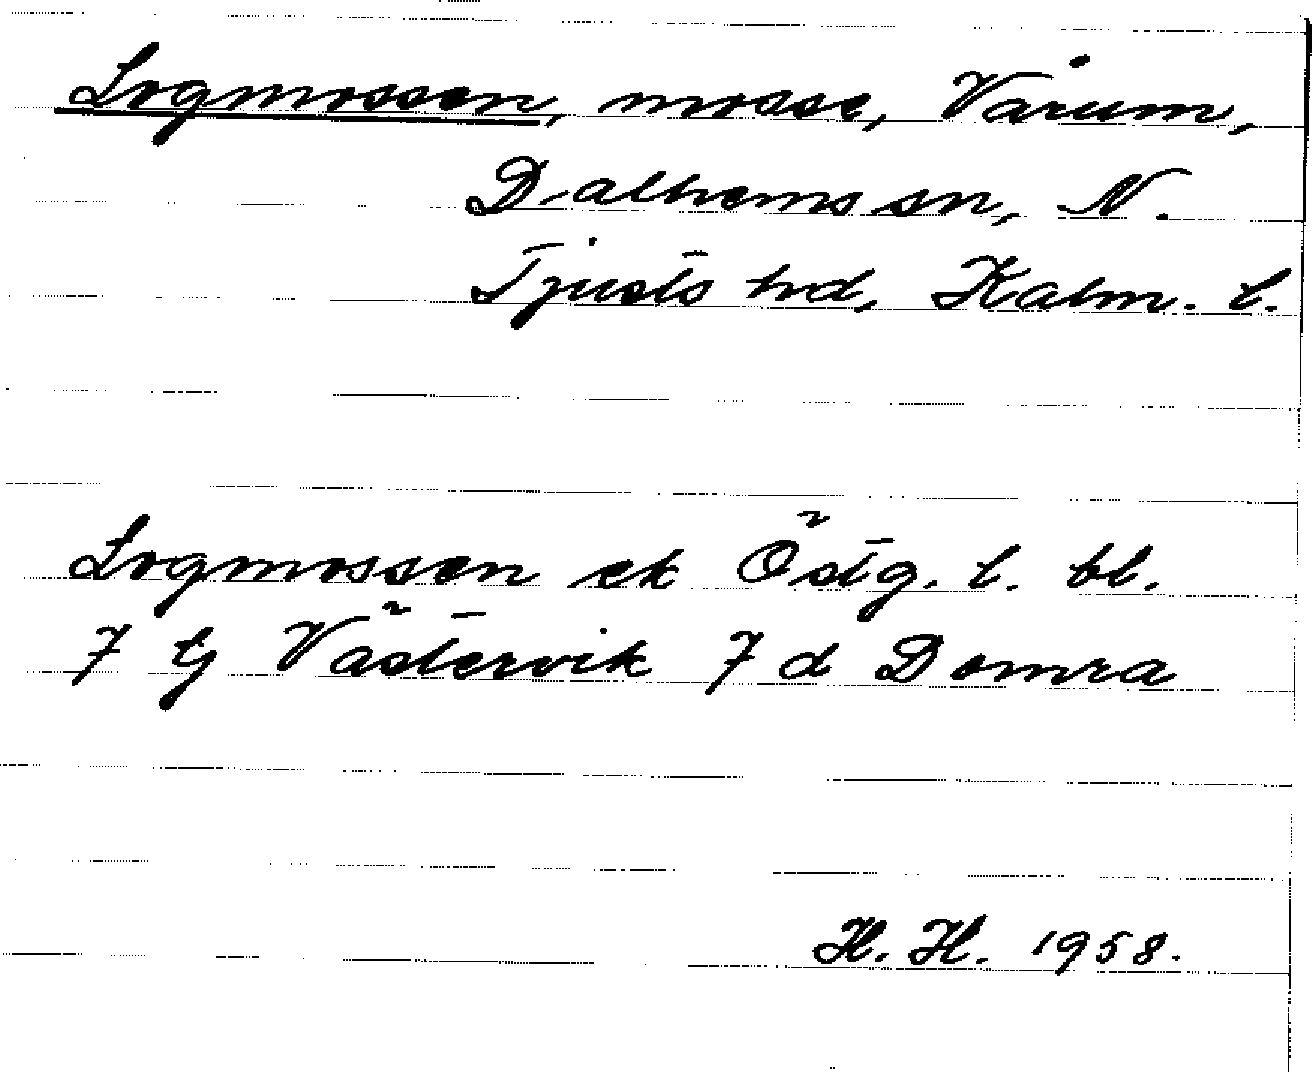 Logmossen, mosse, Vårum,
Dalhems sn, N.
Tjusts hd, Kalm. l.
Logmossen ek Östg. l. bl.
7 Lj Västervik 7 d Domra
H. H. 1958.